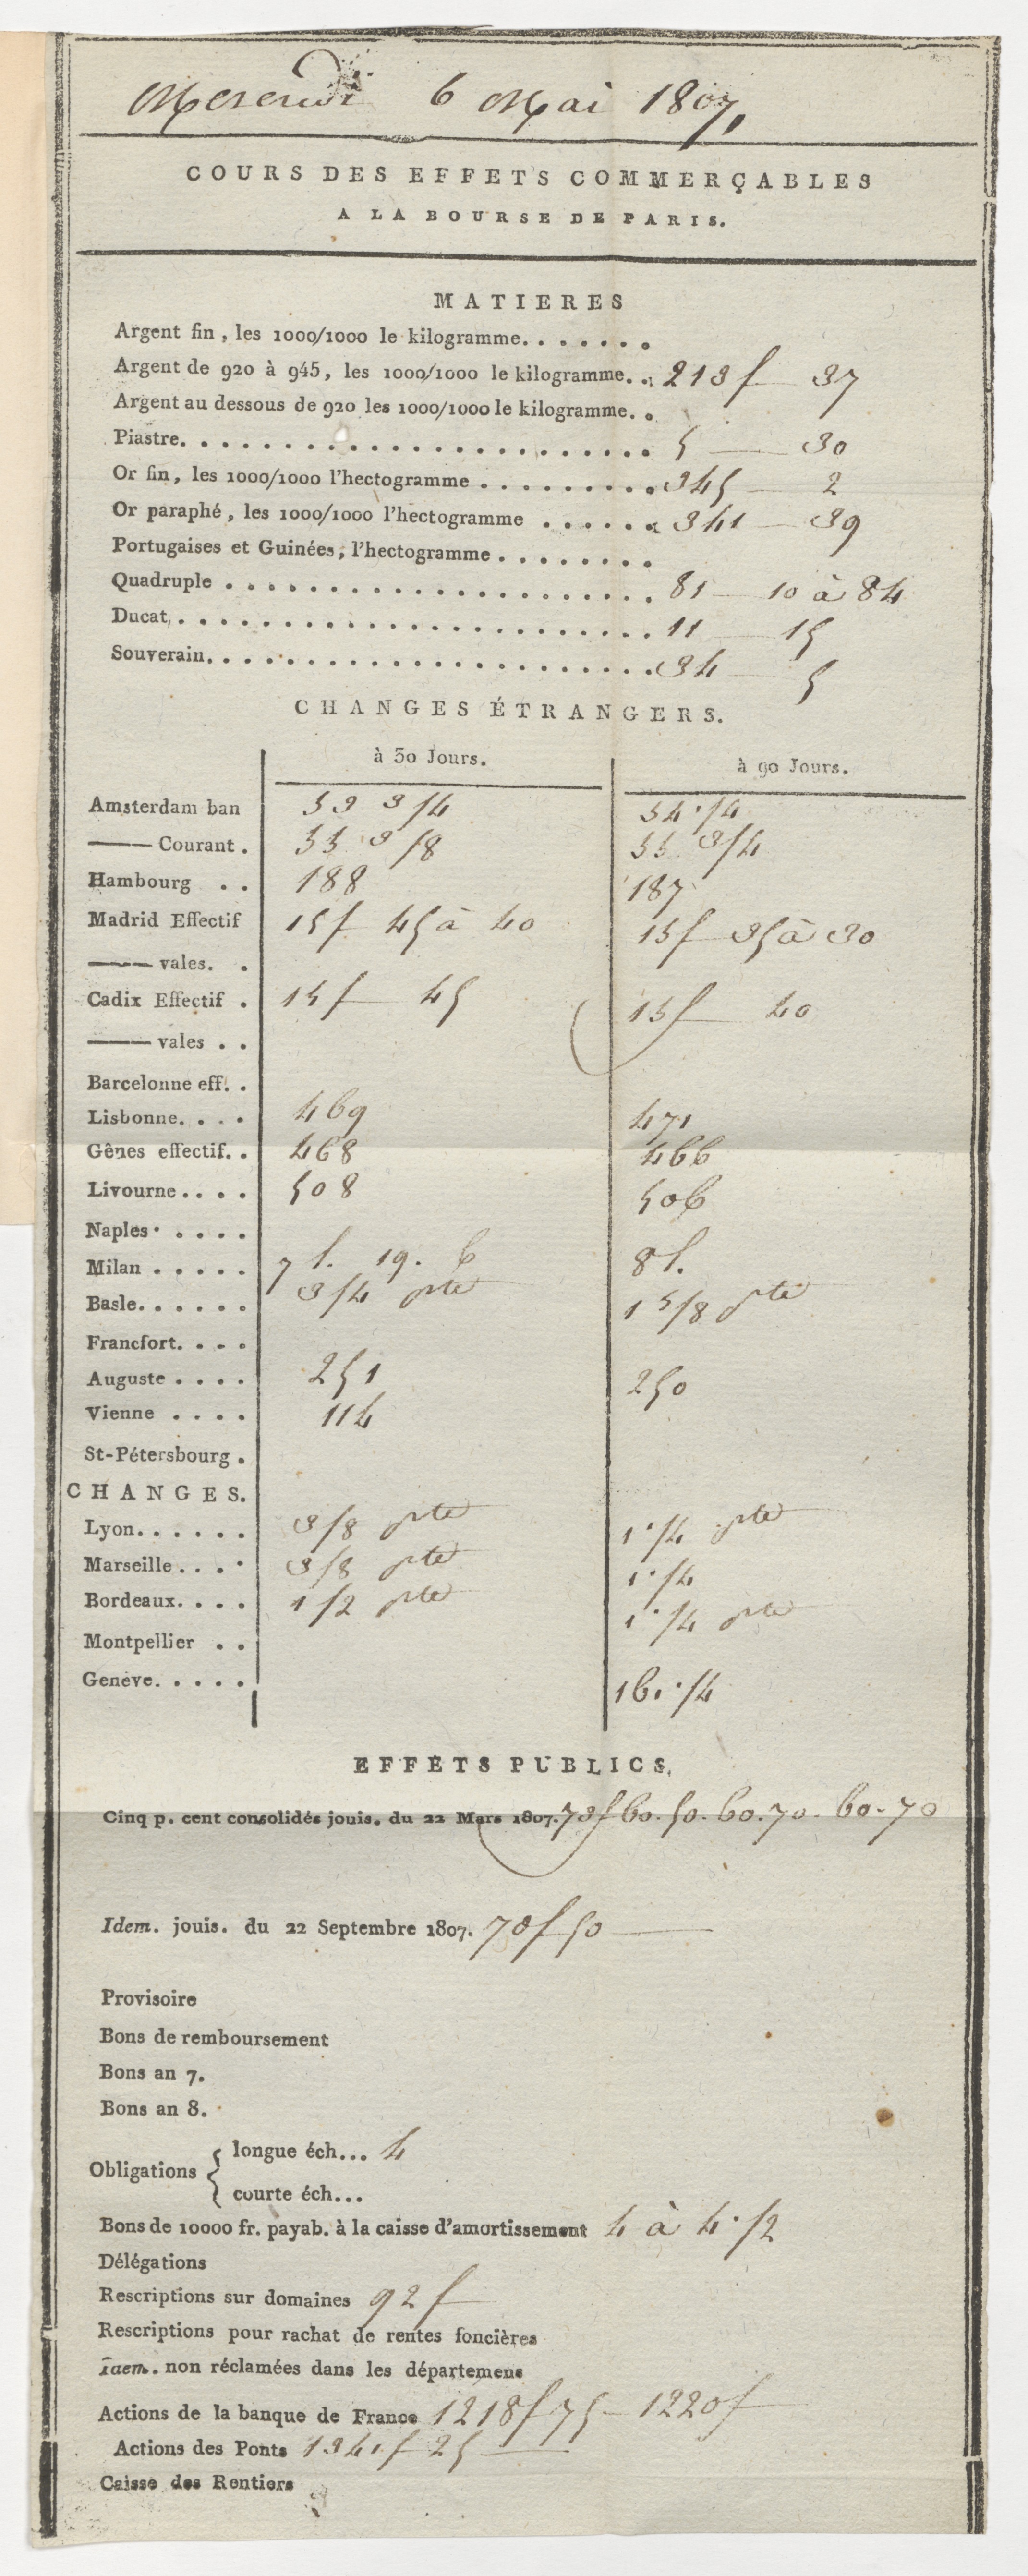 Mercredi 6 Mai 1807,
COURS DES EFFETS COMMERÇABLES
A LA BOURSE DE PARIS.
MATIERES
Argent fin, les 1000/1000 le kilogramme.......
Argent de 920 à 945, les 1000/1000 le kilogramme.. 213f 37
Argent au dessous de 920 les 1000/1000 le kilogramme..
Piastre........................ 5 — 30
Or fin, les 1000/1000 l'hectogramme ......... 345 — 2
Or paraphé, les 1000/1000 l'hectogramme ...... 341 — 39
Portugaises et Guinées, l'hectogramme ........
Quadruple ...................... 81 — 10 à 84
Ducat......................... 11 — 15
Souverain....................... 34 — 5
CHANGES ÉTRANGERS.
à 30 Jours. à 90 Jours.
Amsterdam ban 53 3/4 54 1/4
—— Courant. 55 3/8 55 3/4
Hambourg .. 188 187
Madrid Effectif 15f 45 à 40 15f 35 à 30
—— vales. .
Cadix Effectif . 15f 45 15f 40
—— vales ..
Barcelonne eff. .
Lisbonne.... 469 471
Gênes effectif.. 468 466
Livourne.... 508 506
Naples.....
Milan ..... 7 l. 19. 6 8 l.
Basle...... 3/4 pte 1 5/8 pte
Francfort....
Auguste .... 251 250
Vienne .... 114
St-Pétersbourg .
CHANGES.
Lyon...... 3/8 pte 1 1/4 pte
Marseille.... 3/8 pte 1 1/4
Bordeaux.... 1/2 pte 1 1/4 pte
Montpellier ..
Genève..... 161 1/4
EFFETS PUBLICS.
Cinq p. cent consolidés jouis. du 22 Mars 1807. 73f 60. 50. 60. 70. 60. 70
Idem. jouis. du 22 Septembre 1807. 70f 50
Provisoire
Bons de remboursement
Bons an 7.
Bons an 8.
Obligations { longue éch... 4
courte éch...
Bons de 10000 fr. payab. à la caisse d'amortissement 4 à 4 1/2
Délégations
Rescriptions sur domaines 92f
Rescriptions pour rachat de rentes foncières
Idem. non réclamées dans les départemens
Actions de la banque de France 1218f 75 — 1220f
Actions des Ponts 1341f 25
Caisse des Rentiers